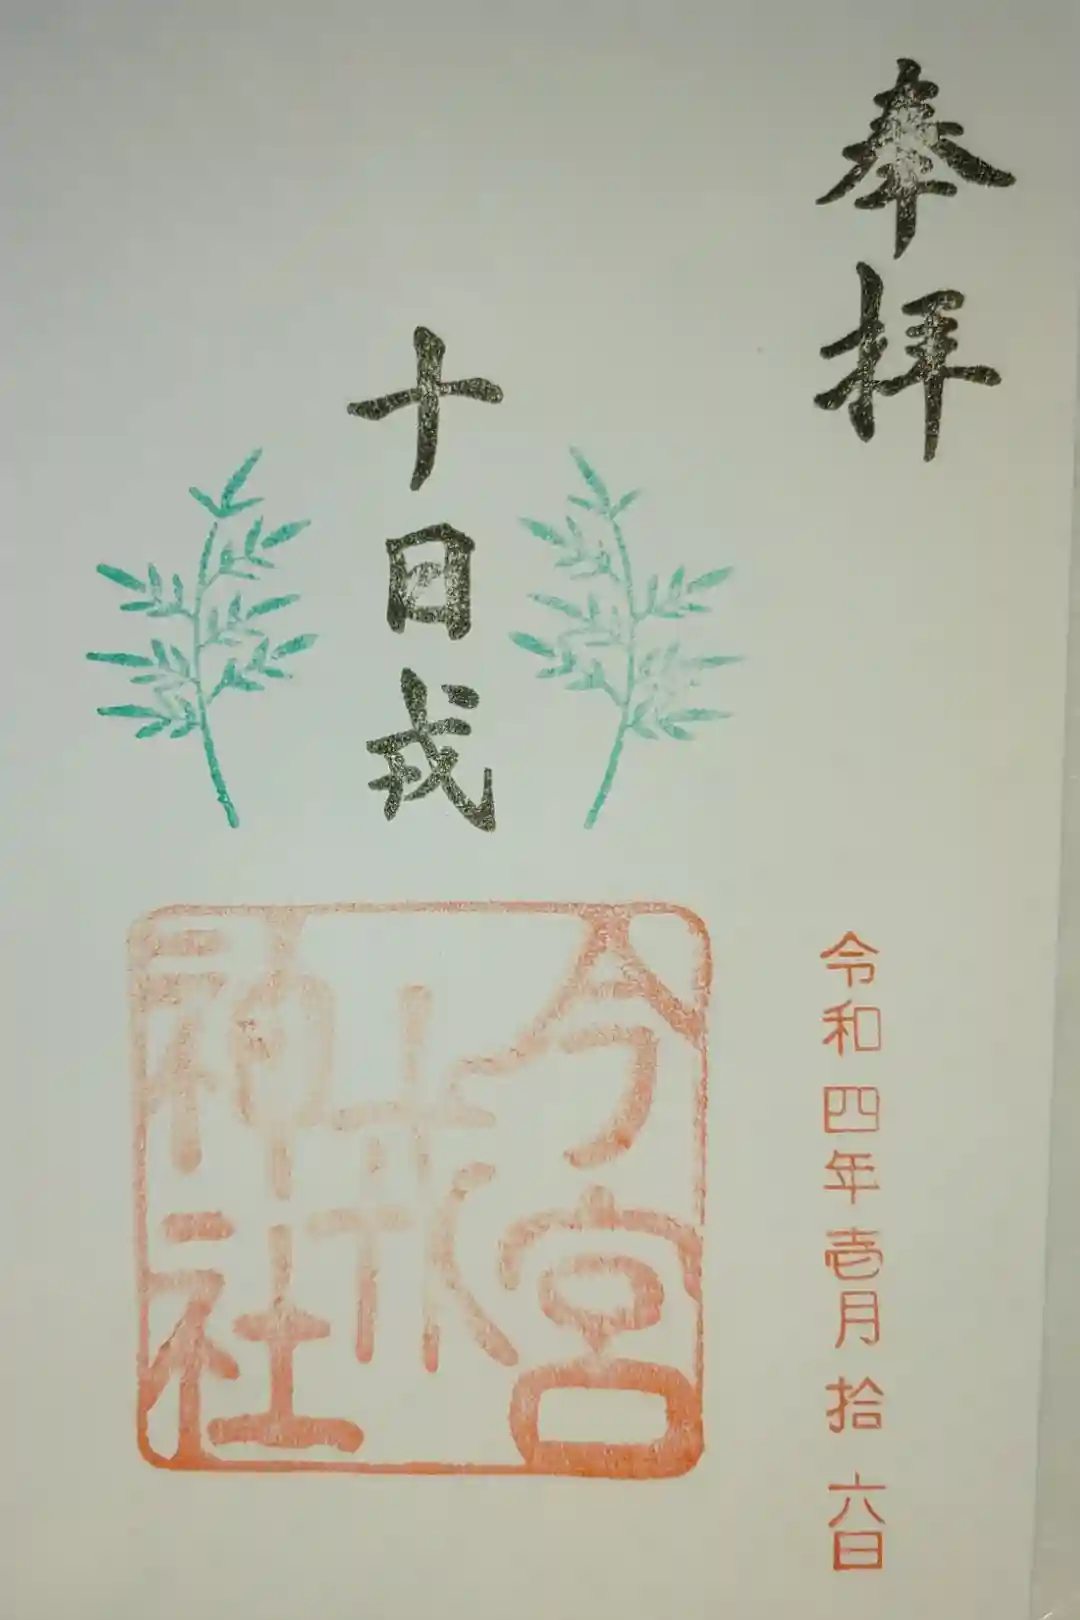 奉拝
十日戎
今宮
戎
神社
令和四年壱月拾六日